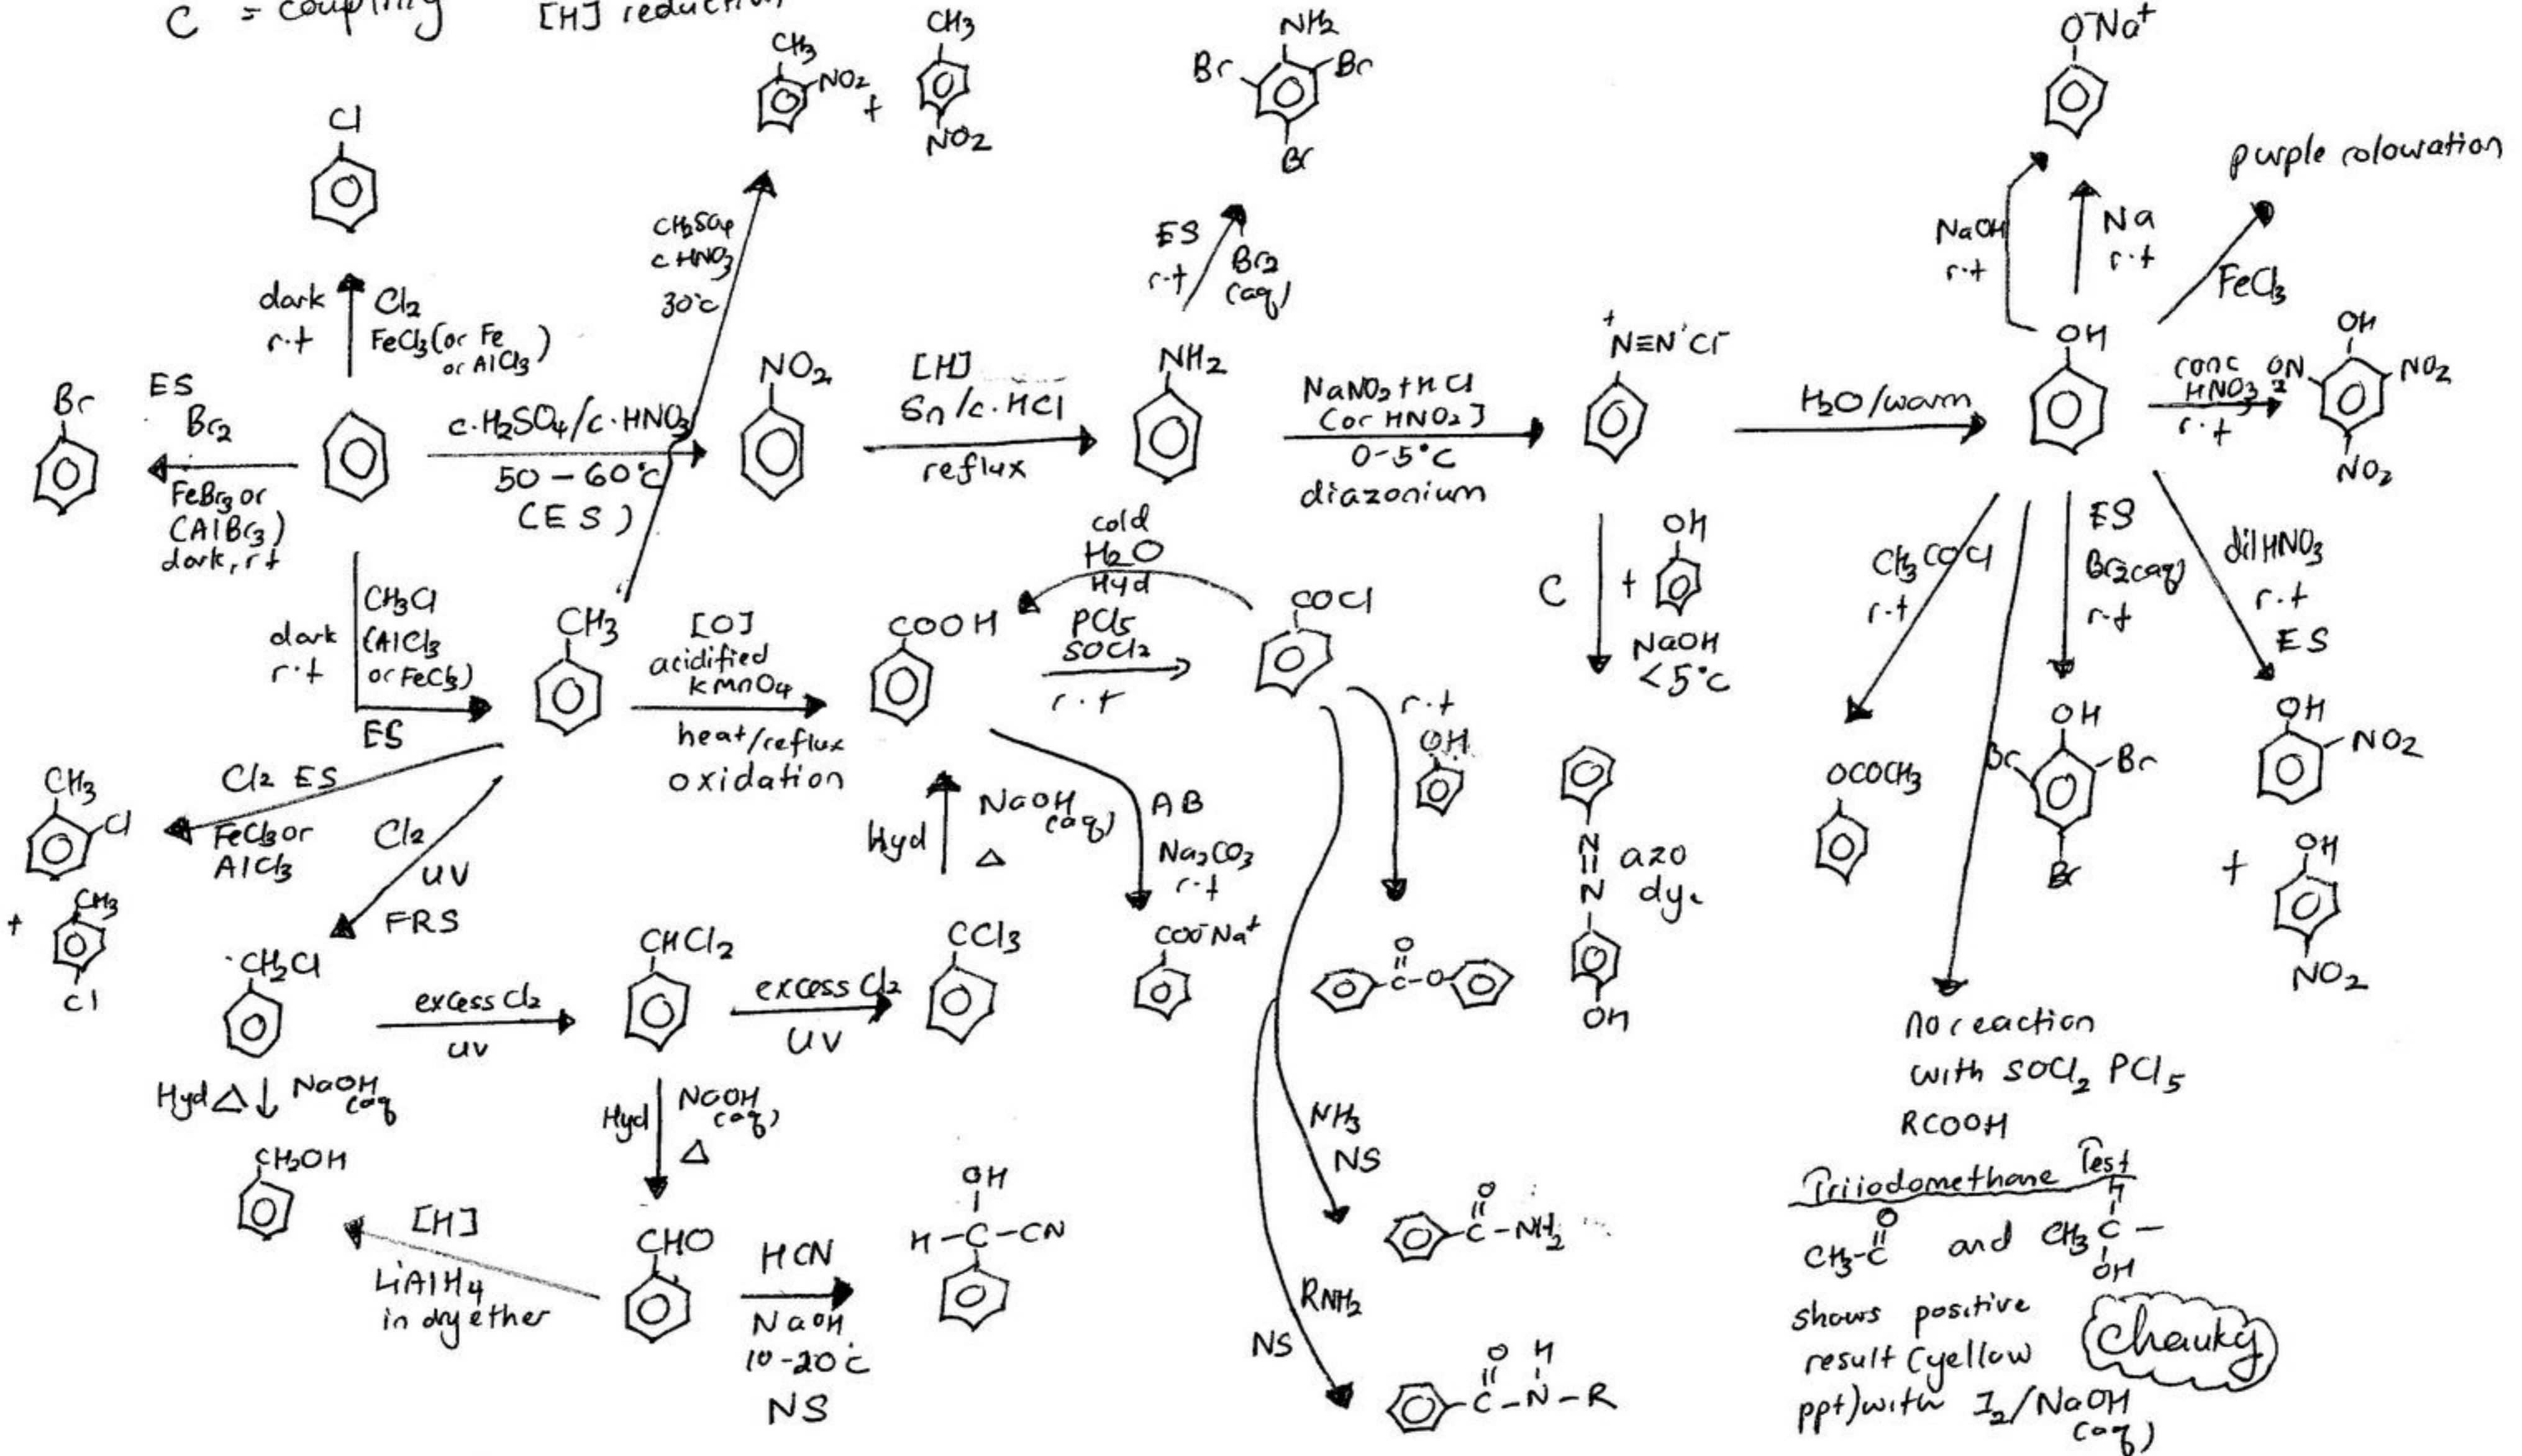 C = coupling [H] reduction
CH3
NO2
+
CH3
NO2
NH2
Br
Br
Br
O⁻Na⁺
Cl
purple colouration
cH2SO4
cHNO3
30°c
ES
r.t
Br2
(aq)
NaOH
r.t
Na
r.t
FeCl3
dark
r.t
Cl2
FeCl3 (or Fe
or AlCl3)
Br
ES
Br2
FeBr3 or
(AlBr3)
dark, r.t
c.H2SO4/c.HNO3
50-60°c
(ES)
NO2
[H]
Sn/c.HCl
reflux
NH2
NaNO2+HCl
(or HNO2)
0-5°C
diazonium
⁺N≡N Cl⁻
H2O/warm
OH
conc
HNO3
r.t
OH
O2N
NO2
NO2
dark
r.t
CH3Cl
(AlCl3
or FeCl3)
ES
CH3
[O]
acidified
KMnO4
heat/reflux
oxidation
COOH
cold
H2O
Hyd
PCl5
SOCl2
r.t
COCl
C
+
OH
NaOH
<5°C
CH3COCl
r.t
ES
Br2(aq)
r.t
dil HNO3
r.t
ES
r.t
OH
OCOCH3
OH
Br
Br
Br
OH
NO2
+
OH
NO2
CH3
Cl
+
CH3
Cl
Cl2 ES
FeCl3 or
AlCl3
Cl2
UV
FRS
Hyd
NaOH
(aq)
△
AB
Na2CO3
r.t
COO⁻Na⁺
N
=
N
OH
azo
dye
CH2Cl
excess Cl2
UV
CHCl2
excess Cl2
UV
CCl3
O
=
C-O
no reaction
with SOCl2 PCl5
RCOOH
Hyd △ NaOH
(aq
CH2OH
Hyd
NaOH
(aq)
△
[H]
LiAlH4
in dry ether
CHO
HCN
NaOH
10-20°c
NS
OH
H-C-CN
NH3
NS
O
=
C-NH2
RNH2
NS
O H
C-N-R
Triiodomethane Test
O
CH3-C and CH3 C-
H
OH
shows positive
result (yellow
ppt) with I2/NaOH
(aq)
Chauky